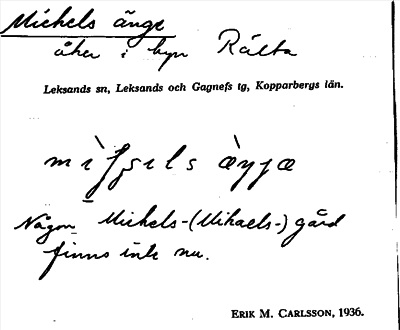 Michels änge
åker i byn Rälta
Leksands sn, Leksands och Gagnefs tg, Kopparbergs län.
Någon Michels-(Mikaels-) gård
finns inte nu.
ERIK M. CARLSSON, 1936.